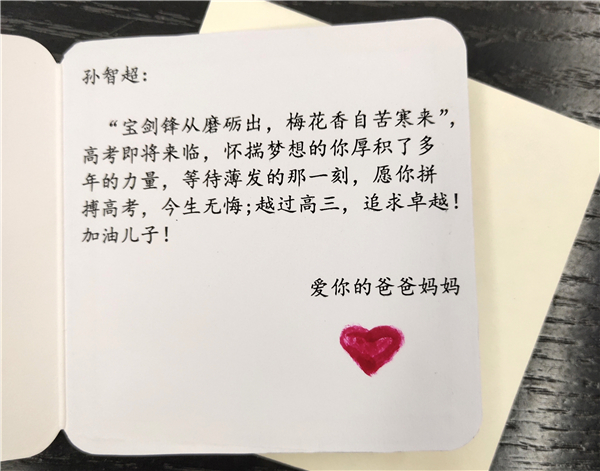 孙智超：
“宝剑锋从磨砺出，梅花香自苦寒来”，
高考即将来临，怀揣梦想的你厚积了多
年的力量，等待薄发的那一刻，愿你拼
搏高考，今生无悔;越过高三，追求卓越！
加油儿子！
爱你的爸爸妈妈